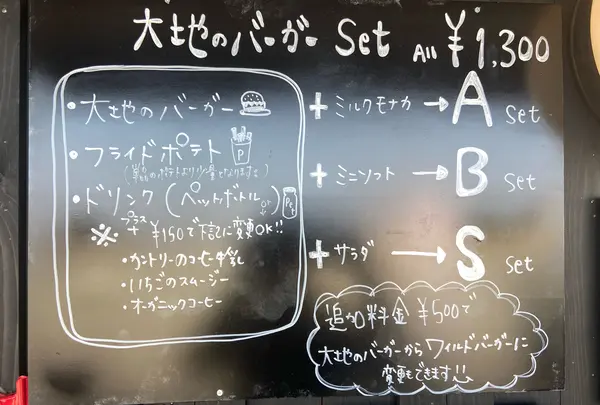 大地のバーガー Set All ¥1,300
・大地のバーガー
・フライドポテト
(単品のポテトより少量となります。)
・ドリンク(ペットボトル or
※プラス+ ¥150で下記に変更OK!!
・カントリーのコーヒー牛乳
・いちごのスムージー
・オーガニックコーヒー
+ ミルクモナカ → A Set
+ ミニソフト → B Set
+ サラダ → S Set
追加料金 ¥500で
大地のバーガーからワイルドバーガーに
変更もできます!!